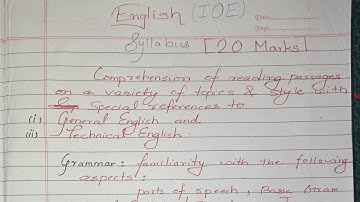 English (IOE)
Syllabus [20 Marks]
Comprehension of reading passages
on a variety of topics & style with
Special references to
(i) General English and
(ii) Technical English.
Grammar: familiarity with the following
aspects:
parts of speech, Basic Gram